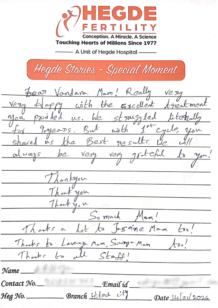 HEGDE
FERTILITY
Conception. A Miracle, A Science
Touching Hearts of Millions Since 1977
A Unit of Hegde Hospital
Hegde Stories - Special Moment
Dear Vandana Mam! Really very
very Happy with the excellent treatment
you provided us. We struggled literally
for 9years. But with 1st cycle, you
shared us the Best results. We will
always be very very grateful to you!
Thankyou
Thank you
Thank you
So much Mam!
Thanks a lot to Jasmine Mam too!
Thanks to Lavanya Mam, Mam too!
Thanks to all Staff!
Name
Contact No. Email id
Heg No. Branch Hitech city Date